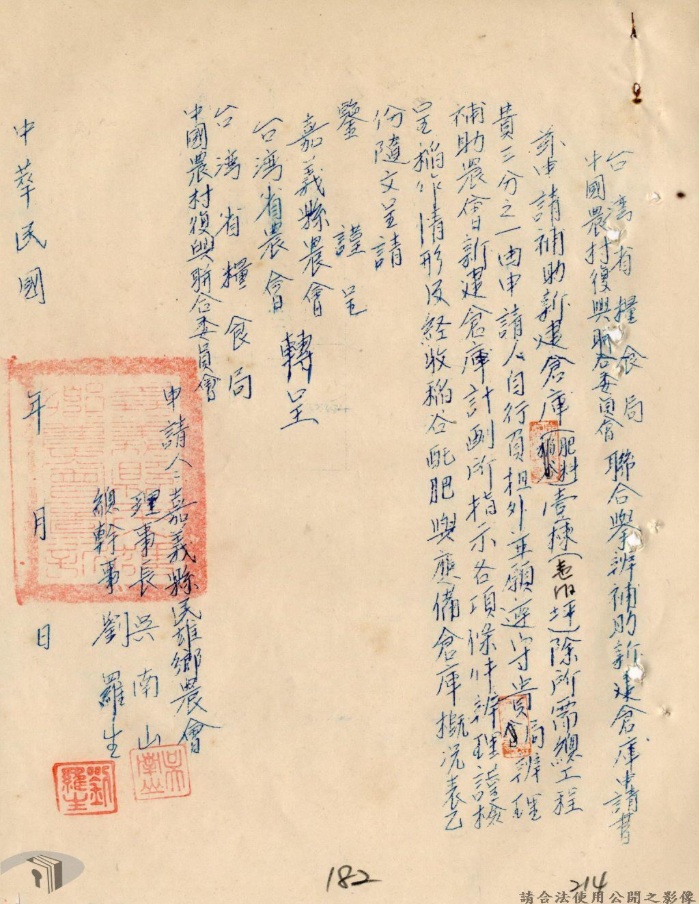 台灣省糧食局
中國農村復興聯合委員會
聯合舉辦補助新建倉庫申請書
茲申請補助新建倉庫(肥料 稻谷)壹棟(壱〇〇坪)除所需總工程
費三分之一由申請人自行負担外並願遵守貴局 會辦理
補助農會新建倉庫計劃所指示各項條件辦理謹檢
呈稻作情形及経收稻谷配肥與應備倉庫概況表乙
份隨文呈請
鑒 謹呈
嘉義縣農會 轉呈
台灣省農會
台灣省糧食局
中國農村復興聯合委員會
申請人:嘉義縣民雄鄉農會
理事長 吳南山
總幹事 劉羅生
中華民國 年 月 日
吳南山
劉羅生
182
214
請合法使用公開之影像